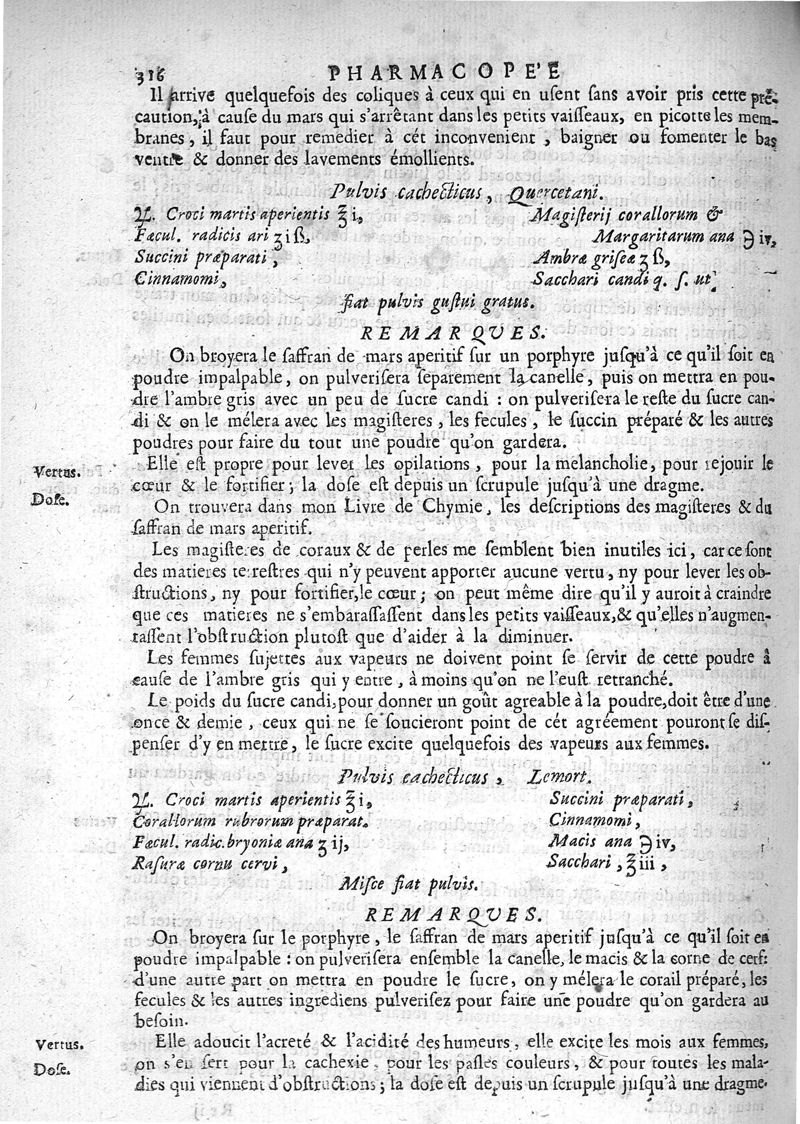 316 PHARMACOPE'E
Il arrive quelquefois des coliques à ceux qui en usent sans avoir pris cette pré-
caution, à cause du mars qui s'arrêtant dans les petits vaisseaux, en picotte les mem-
branes, il faut pour remedier à cét inconvenient, baigner ou fomenter le bas
ventre & donner des lavements émollients.
Pulvis cachecticus, Quercetani.
♃. Croci martis aperientis ℥ i,
Fæcul. radicis ari ʒ i ß,
Succini præparati,
Cinnamomi,
Magisterij corallorum &
Margaritarum ana ℈ iv,
Ambræ griseæ ʒ ß,
Sacchari candi q. s. ut
fiat pulvis gustui gratus.
REMARQUES.
On broyera le saffran de mars aperitif sur un porphyre jusqu'à ce qu'il soit en
poudre impalpable, on pulverisera separement la canelle, puis on mettra en pou-
dre l'ambre gris avec un peu de sucre candi : on pulverisera le reste du sucre can-
di & on le mélera avec les magisteres, les fecules, le succin préparé & les autres
poudres pour faire du tout une poudre qu'on gardera.
Vertus.
Elle est propre pour lever les opilations, pour la melancholie, pour rejouir le
Dose.
cœur & le fortifier; la dose est depuis un scrupule jusqu'à une dragme.
On trouvera dans mon Livre de Chymie, les descriptions des magisteres & du
saffran de mars aperitif.
Les magisteres de coraux & de perles me semblent bien inutiles ici, car ce sont
des matieres terrestres qui n'y peuvent apporter aucune vertu, ny pour lever les ob-
structions, ny pour fortifier, le cœur; on peut même dire qu'il y auroit à craindre
que ces matieres ne s'embarassassent dans les petits vaisseaux, & qu'elles n'augmen-
tassent l'obstruction plutost que d'aider à la diminuer.
Les femmes sujettes aux vapeurs ne doivent point se servir de cette poudre à
cause de l'ambre gris qui y entre, à moins qu'on ne l'eust retranché.
Le poids du sucre candi, pour donner un goût agreable à la poudre, doit être d'une
once & demie, ceux qui ne se soucieront point de cét agréement pouront se dis-
penser d'y en mettre, le sucre excite quelquefois des vapeurs aux femmes.
Pulvis cachecticus, Lemort.
♃. Croci martis aperientis ℥ i,
Corallorum rubrorum præparat.
Fæcul. radic. bryoniæ ana ʒ ij,
Rasuræ cornu cervi,
Succini præparati,
Cinnamomi,
Macis ana ℈ iv,
Sacchari, ℥ iii,
Misce fiat pulvis.
REMARQUES.
On broyera sur le porphyre, le saffran de mars aperitif jusqu'à ce qu'il soit en
poudre impalpable : on pulverisera ensemble la canelle, le macis & la corne de cerf:
d'une autre part on mettra en poudre le sucre, on y mélera le corail préparé, les
fecules & les autres ingrediens pulverisez pour faire une poudre qu'on gardera au
besoin.
Vertus.
Elle adoucit l'acreté & l'acidité des humeurs, elle excite les mois aux femmes,
Dose.
on s'en sert pour la cachexie, pour les pasles couleurs, & pour toutes les mala-
dies qui viennent d'obstructions; la dose est depuis un scrupule jusqu'à une dragme.